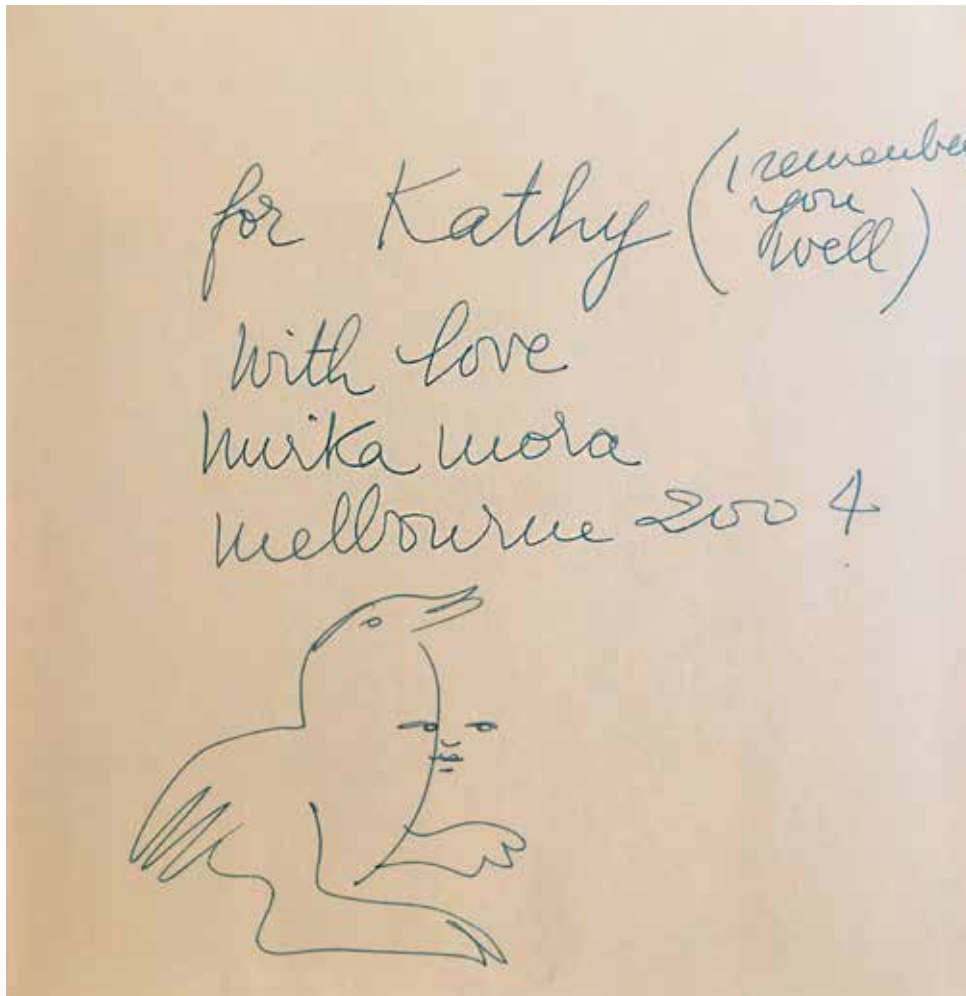 for Kathy (I remember
you
well)
with love
mirka mora
melbourne 2004